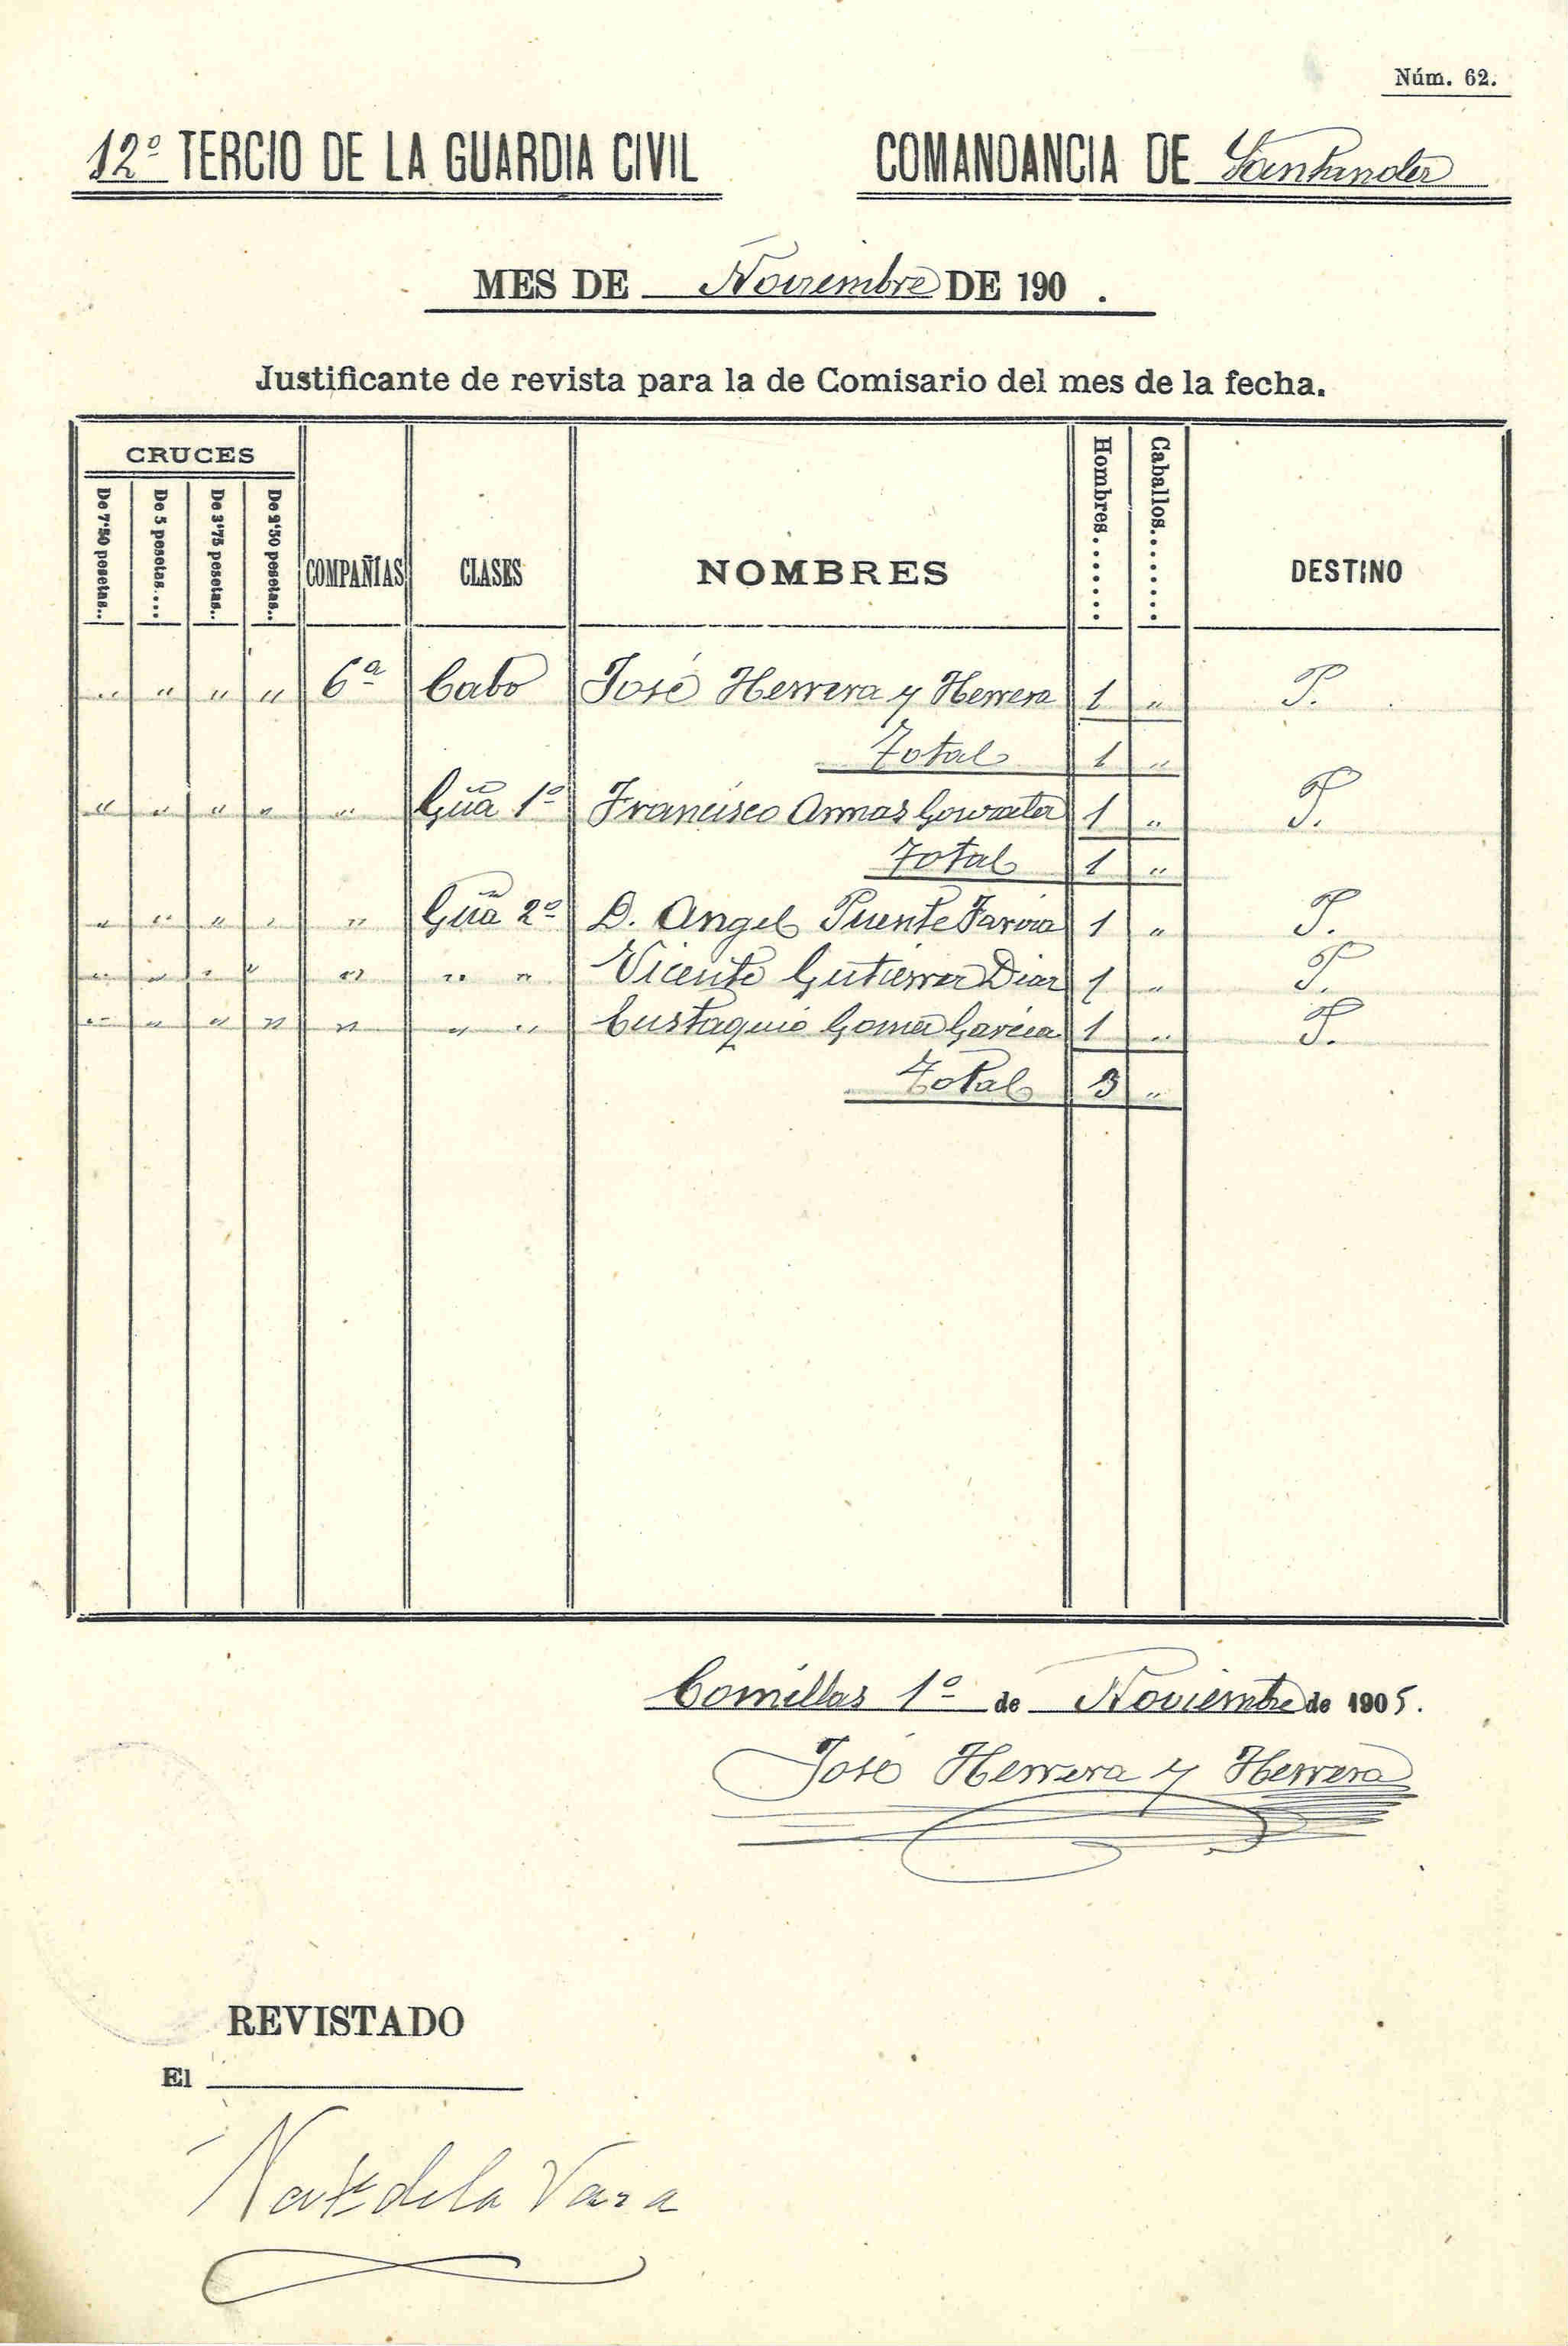 Núm. 62.
12º TERCIO DE LA GUARDIA CIVIL COMANDANCIA DE Santander
MES DE Noviembre DE 190 .
Justificante de revista para la de Comisario del mes de la fecha.
CRUCES
De 7'50 pesetas..
De 5 pesetas....
De 3'75 pesetas..
De 2'50 pesetas..
COMPAÑÍAS
CLASES
NOMBRES
Hombres.......
Caballos........
DESTINO
" " " " 6ª Cabo José Herrera y Herrera 1 " P.
Total 1 "
" " " " " Guª 1º Francisco Armas 1 " P.
Total 1 "
" " " " " Guª 2º D. Angel Puente 1 " P.
" " " " " " " Vicente Gutierrez Diaz 1 " P.
" " " " " " " Eustaquio Gomez Garcia 1 " P.
Total 3 "
Comillas 1º de Noviembre de 1905.
José Herrera y Herrera
REVISTADO
El
de la Vara